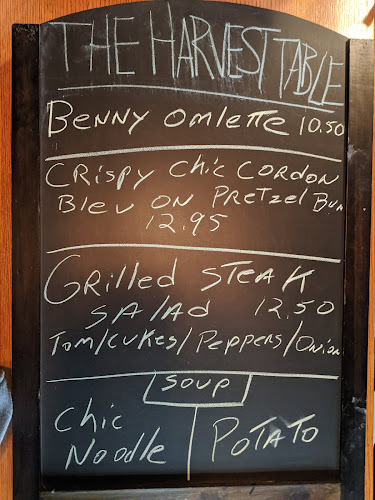 THE HARVEST TABLE
BENNY OMLETTE 10.50
CRISPY CHIC CORDON
BLEU ON PRETZEL BUN
12.95
GRILLED STEAK
SALAD 12.50
TOM/CUKES/PEPPERS/ONION
SOUP
CHIC
NOODLE
POTATO